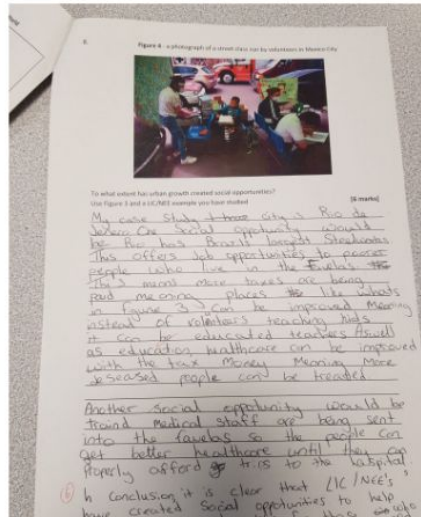 6.
Figure 4 - a photograph of a street class run by volunteers in Mexico City
To what extent has urban growth created social opportunities?
Use Figure 3 and a LIC/NEE example you have studied
[6 marks]
My case Study city is Rio de
One Social opportunity would
be Rio has Brazils largest Steelworks
This offers Job opportunities to poorer
people who live in the
This means more taxes are being
paid meaning places like whats
in figure 3 Can be improved Meaning
instead of teaching kids
it can be educated teachers Aswell
as education, healthcare can be improved
with the trax money Meaning More
people can be treated
Another social oppotunity would be
traind Medical staff are being sent
into the favelas so the people Can
get better healthcare until they can
Properly afford trips to the haspital
6
In conclusion, it is clear that LIC/NEE's
have created Social oppotunities to help